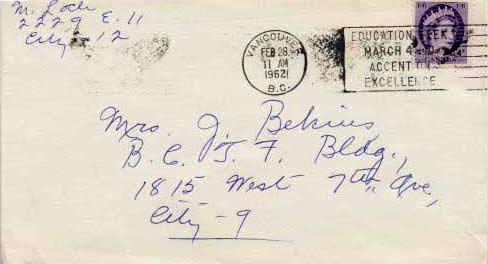 M. Loch
2229 E. 11
City - 12
VANCOUVER
FEB 28
11 AM
1962
B.C.
EDUCATION WEEK
MARCH 4-10
ACCENT ON
EXCELLENCE
Mrs. J. Bekins
B.C.T.F. Bldg.,
1815 West 7th Ave,
City - 9